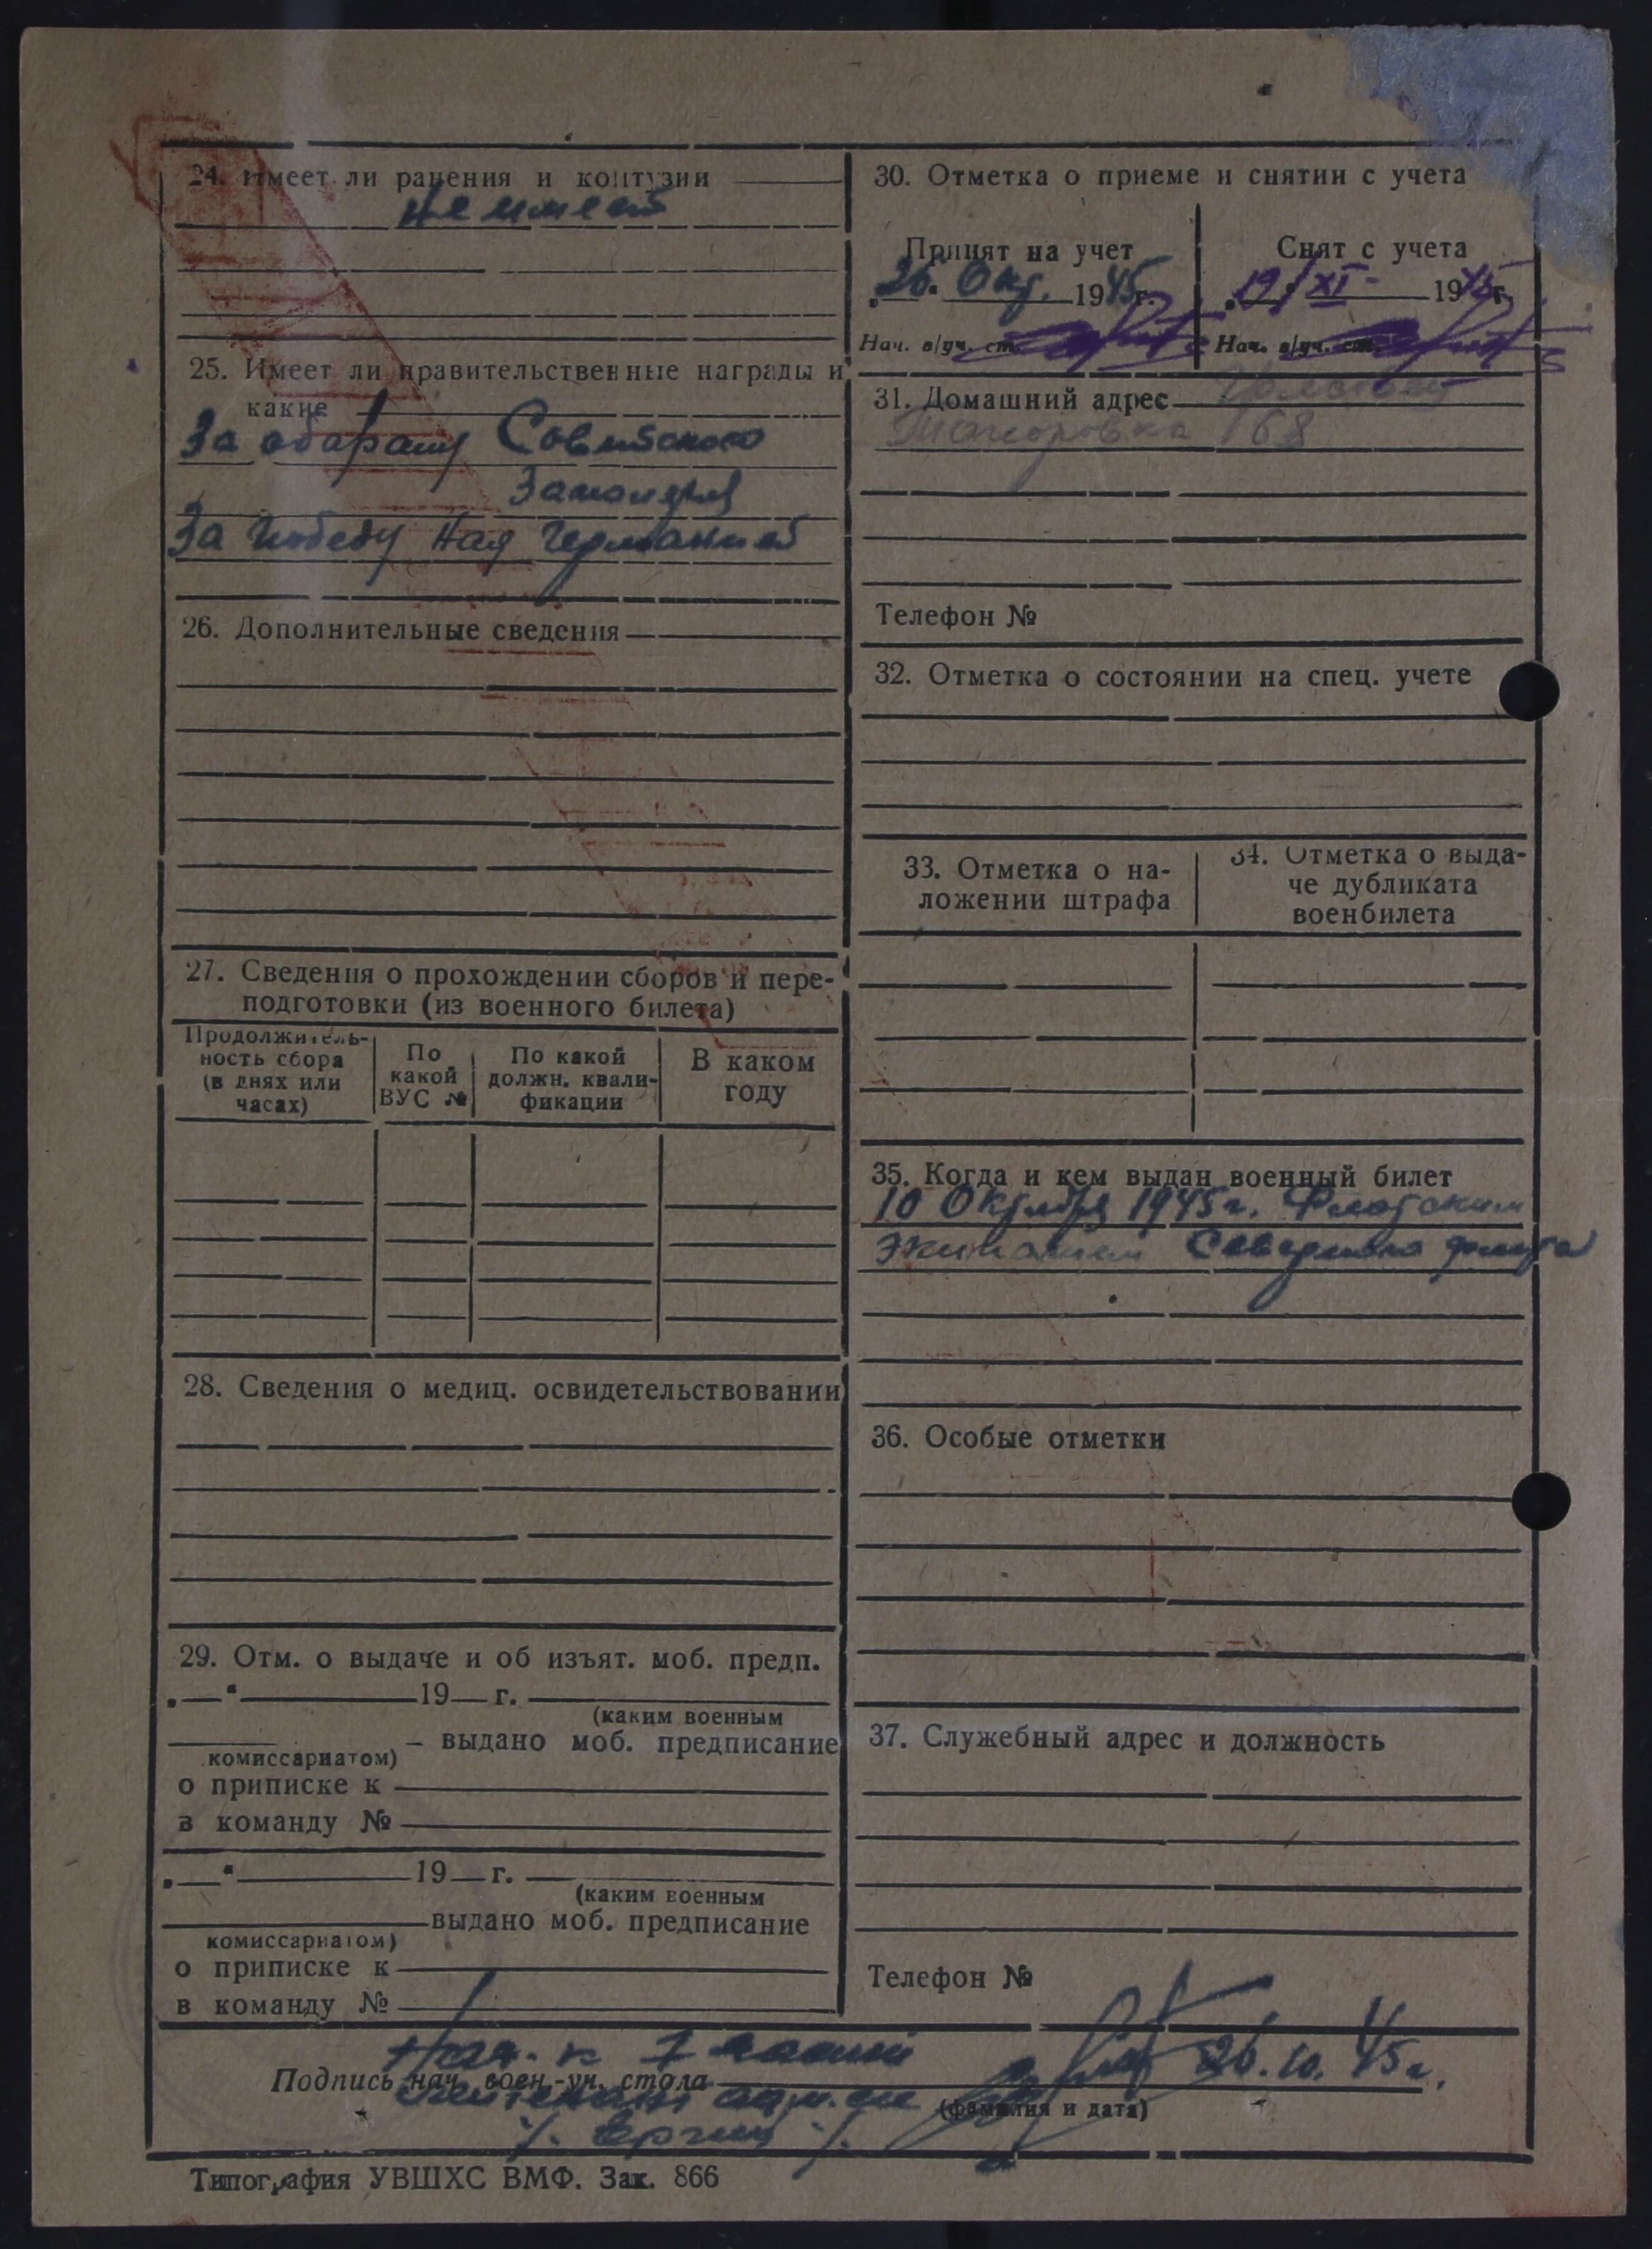 24. Имеет ли ранения и контузии
Не имеет
25. Имеет ли правительственные награды и
какие
За оборону Советского
Заполярья
За победу над Германией
26. Дополнительные сведения
27. Сведения о прохождении сборов и пере-
подготовки (из военного билета)
Продолжитель-
ность сбора
(в днях или
часах)
По
какой
ВУС №
По какой
должн. квали-
фикации
В каком
году
28. Сведения о медиц. освидетельствовании
29. Отм. о выдаче и об изъят. моб. предп.
19 г.
(каким военным
выдано моб. предписание
комиссариатом)
о приписке к
в команду №
19 г.
(каким военным
выдано моб. предписание
комиссариатом)
о приписке к
в команду №
30. Отметка о приеме и снятии с учета
Принят на учет
26 Окт. 1945 г.
Нач. в/уч. ст.
Снят с учета
19/XI 1945 г.
Нач. в/уч. ст.
31. Домашний адрес
168
Телефон №
32. Отметка о состоянии на спец. учете
33. Отметка о на-
ложении штрафа
34. Отметка о выда-
че дубликата
военбилета
35. Когда и кем выдан военный билет
10 Октября 1945 г. Флотским
Экипажем Северного флота
36. Особые отметки
37. Служебный адрес и должность
Телефон №
Нач. 26.10.45 г.
Подпись нач. воен.-уч. стола
(фамилия и дата)
Типография УВШХС ВМФ. Зак. 866